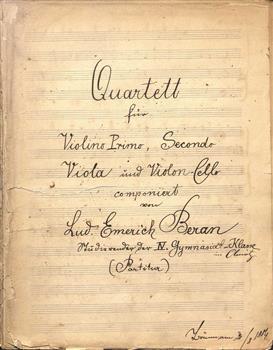 Quartett
für
Violino Primo, Secondo
Viola und Violon-Cello
componiert
von
Lud. Emerich Beran
Studierender der IV. Gymnasial-Klasse
in
(Partitur)